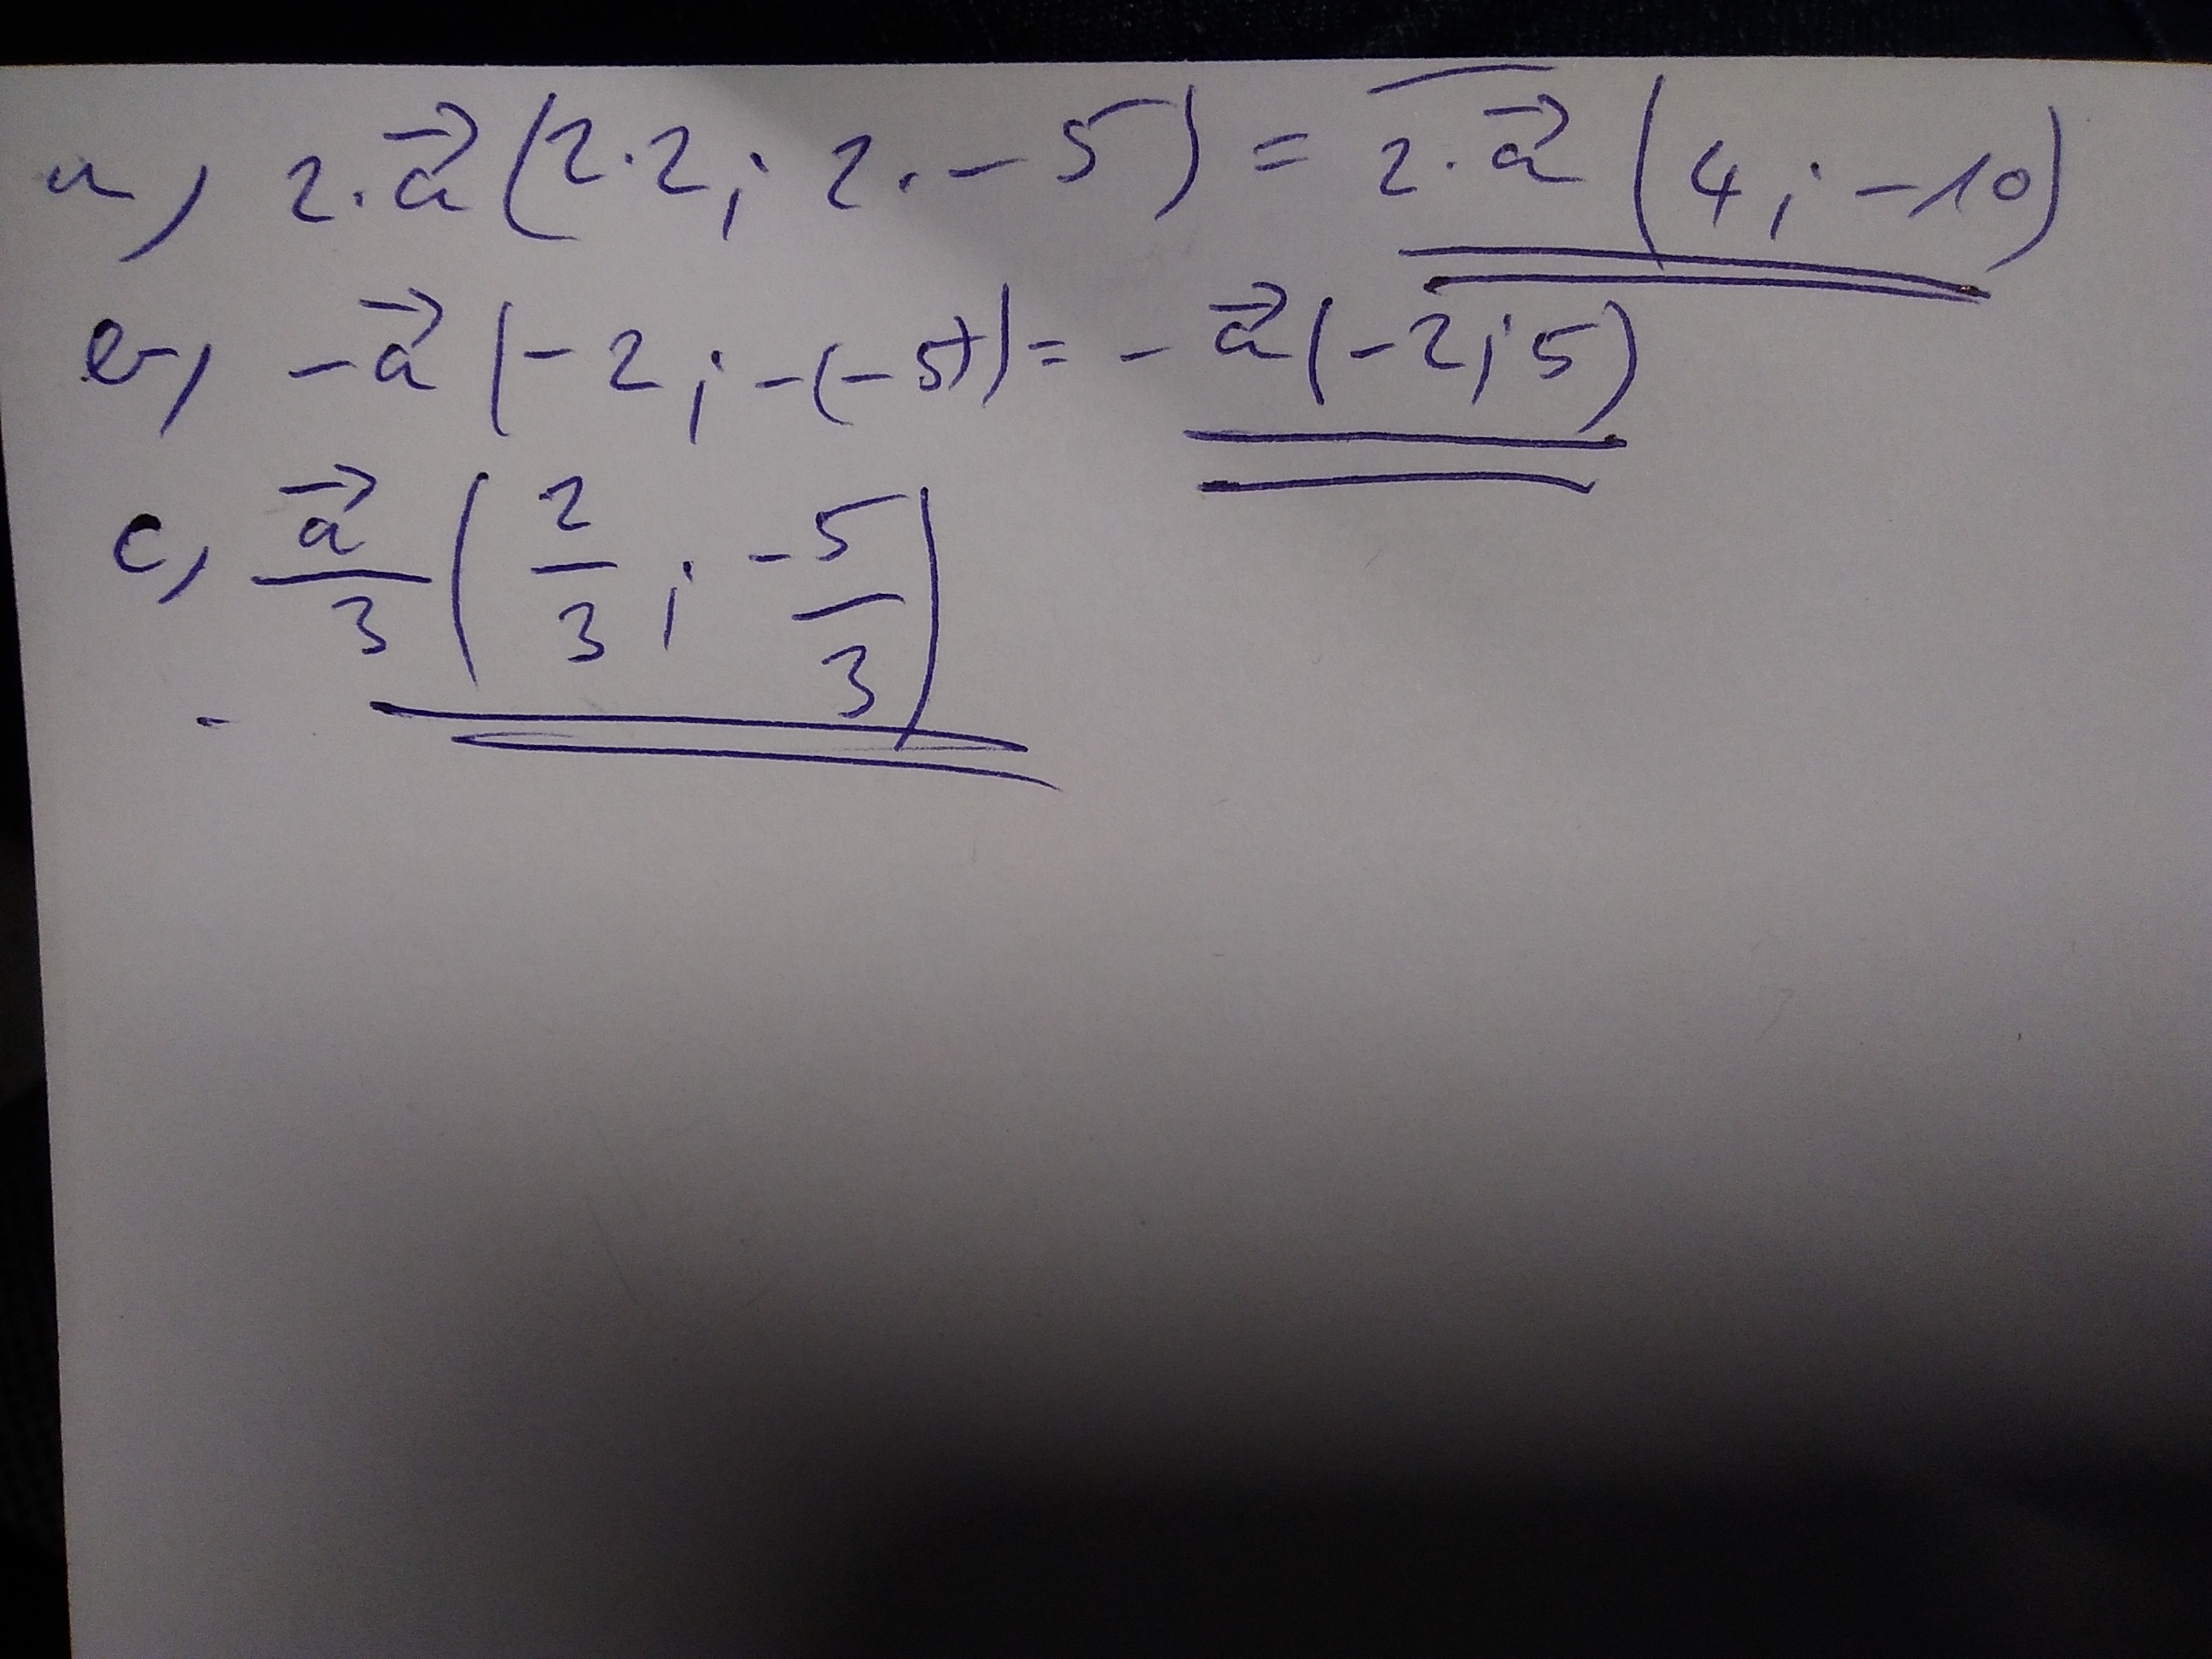 a) 2·a⃗ (2·2; 2·-5) = 2·a⃗ (4; -10)
b) -a⃗ (-2; -(-5)) = -a⃗ (-2; 5)
c) a⃗/3 (2/3; -5/3)